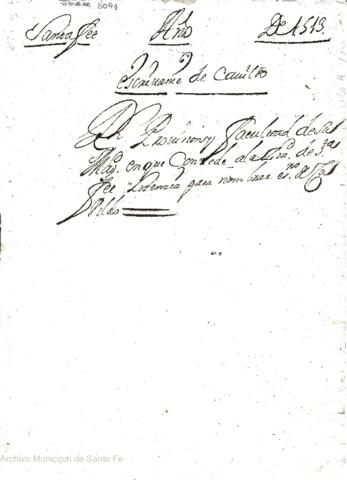 Santa Fee Año De 1513.
escriuano de Cauildo
Rl Prouision y Facultad de Su
Magd. en que Concede a la Ciud. de Sta
Fee Licencia para nombrar esno. de Ca
Vildo
Archivo Municipal de Santa Fe